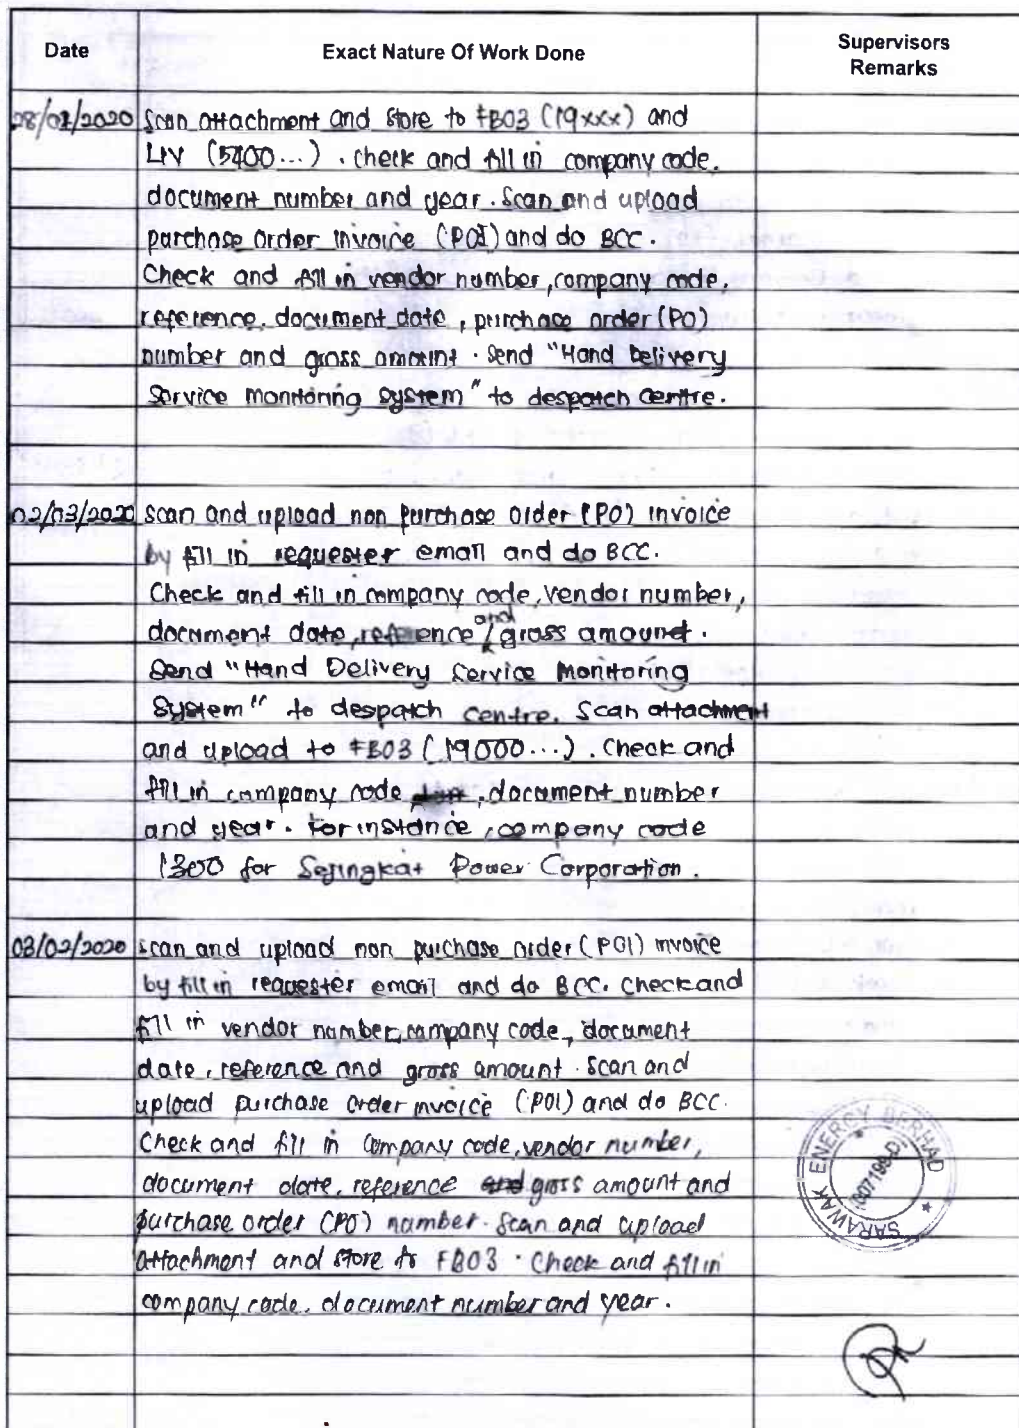 Date Exact Nature Of Work Done Supervisors Remarks
28/02/2020 Scan attachment and store to FB03 (19xxx) and
LIV (5400...). check and fill in company code,
document number and year. Scan and upload
purchase order invoice (POI) and do BCC.
Check and fill in vendor number, company code,
reference, document date, purchase order (PO)
number and gross amount. Send "Hand Delivery
Service Monitoring System" to despatch centre.
02/03/2020 scan and upload non purchase order (PO) invoice
by fill in requester email and do BCC.
Check and fill in company code, vendor number,
document date, reference and gross amount.
Send "Hand Delivery Service Monitoring
System" to despatch centre. Scan attachment
and upload to FB03 (19000...). Check and
fill in company code, document number
and year. For instance, company code
1300 for Sejingkat Power Corporation.
03/02/2020 scan and upload non purchase order (POI) invoice
by fill in requester email and do BCC. Check and
fill in vendor number, company code, document
date, reference and gross amount. Scan and
upload purchase order invoice (POI) and do BCC.
Check and fill in company code, vendor number,
document date, reference and gross amount and
purchase order (PO) number. Scan and upload
attachment and store to FB03. Check and fill in
company code, document number and year.
SARAWAK ENERGY BERHAD
(007199-D)